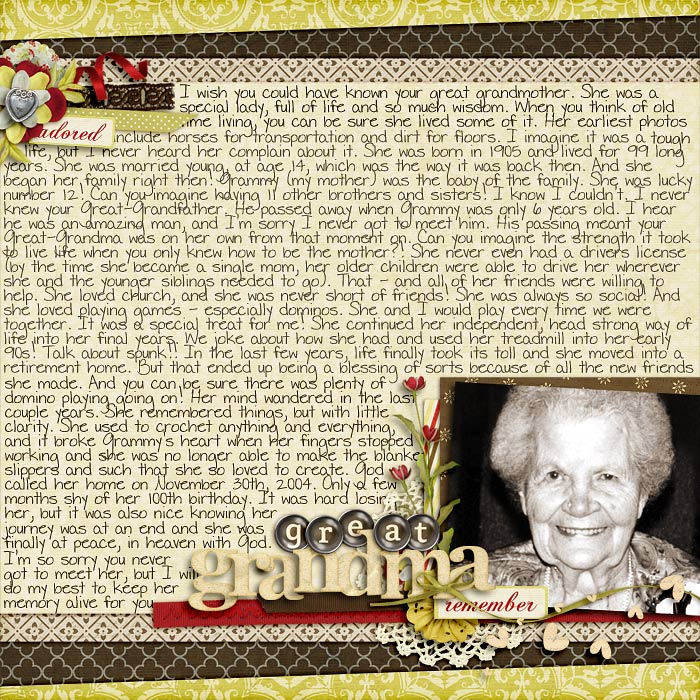 I wish you could have known your great grandmother. She was a
special lady, full of life and so much wisdom. When you think of old
time living, you can be sure she lived some of it. Her earliest photos
adored
include horses for transportation and dirt for floors. I imagine it was a tough
life, but I never heard her complain about it. She was born in 1905 and lived for 99 long
years. She was married young, at age 14, which was the way it was back then. And she
began her family right then! Grammy (my mother) was the baby of the family. She was lucky
number 12! Can you imagine having 11 other brothers and sisters! I know I couldn't. I never
knew your Great-Grandfather. He passed away when Grammy was only 6 years old. I hear
he was an amazing man, and I'm sorry I never got to meet him. His passing meant your
Great-Grandma was on her own from that moment on. Can you imagine the strength it took
to live life when you only knew how to be the mother?! She never even had a drivers license
(by the time she became a single mom, her older children were able to drive her wherever
she and the younger siblings needed to go). That - and all of her friends were willing to
help. She loved church, and she was never short of friends! She was always so social! And
she loved playing games - especially dominos. She and I would play every time we were
together. It was a special treat for me! She continued her independent, head strong way of
life into her final years. We joke about how she had and used her treadmill into her early
90s! Talk about spunk!! In the last few years, life finally took its toll and she moved into a
retirement home. But that ended up being a blessing of sorts because of all the new friends
she made. And you can be sure there was plenty of
domino playing going on! Her mind wandered in the last
couple years. She remembered things, but with little
clarity. She used to crochet anything and everything,
and it broke Grammy's heart when her fingers stopped
working and she was no longer able to make the blanke
slippers and such that she so loved to create. God
called her home on November 30th, 2004. Only a few
months shy of her 100th birthday. It was hard losing
her, but it was also nice knowing her
journey was at an end and she was
finally at peace, in heaven with God.
I'm so sorry you never
got to meet her, but I will
do my best to keep her
memory alive for you
great
grandma
remember